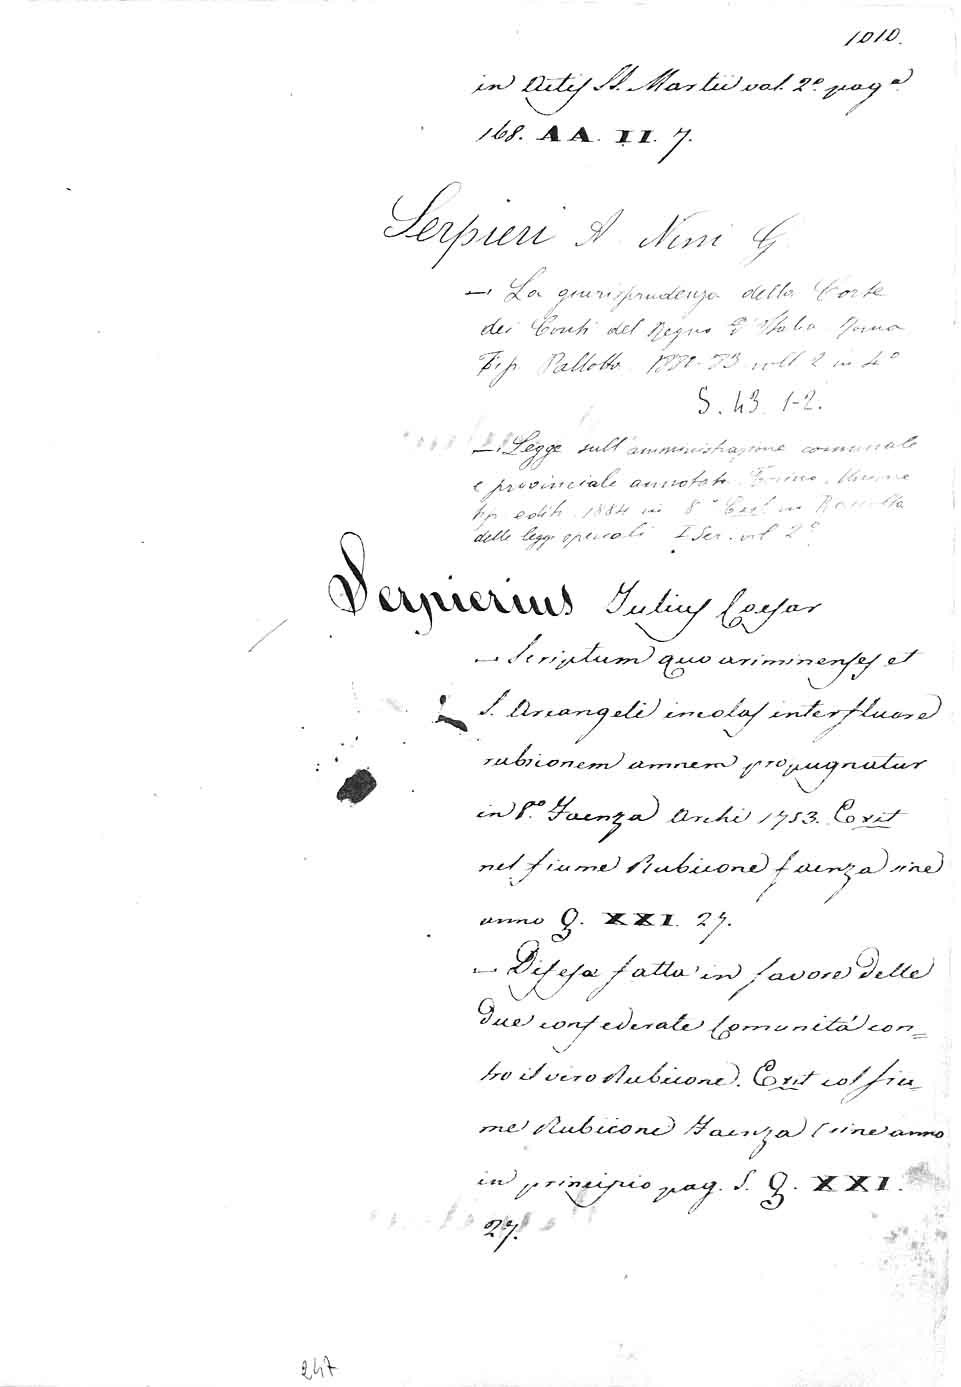 1010.
in Actis SS. Martii vol. 2.º pag.ª
168. AA. II. 7.
Serpieri A. Nini G.
— La giurisprudenza della Corte
dei Conti del Regno d'Italia Roma
Tip. Pallotta 1880-83 voll. 2 in 4º
S. 43. 1-2.
— Legge sull'amministrazione comunale
e provinciale annotata. Torino. Unione
tip. edit. 1884 in 8º Exit in Raccolta
delle leggi speciali I Ser. vol 2º
Serpierius Julius Coesar
— Scriptum quo ariminenses et
S. Arcangeli incolas interfluore
rubiconem amnem propugnatur
in 8.º Faenza Archi 1753. Exit
nel fiume Rubicone faenza sine
anno Q. XXI. 27.
— Difesa fatta in favore delle
due confederate Comunità con=
tro il vero Rubicone. Exit col fiu=
me Rubicone Faenza sine anno
in principio pag. S. Q. XXI.
27.
247